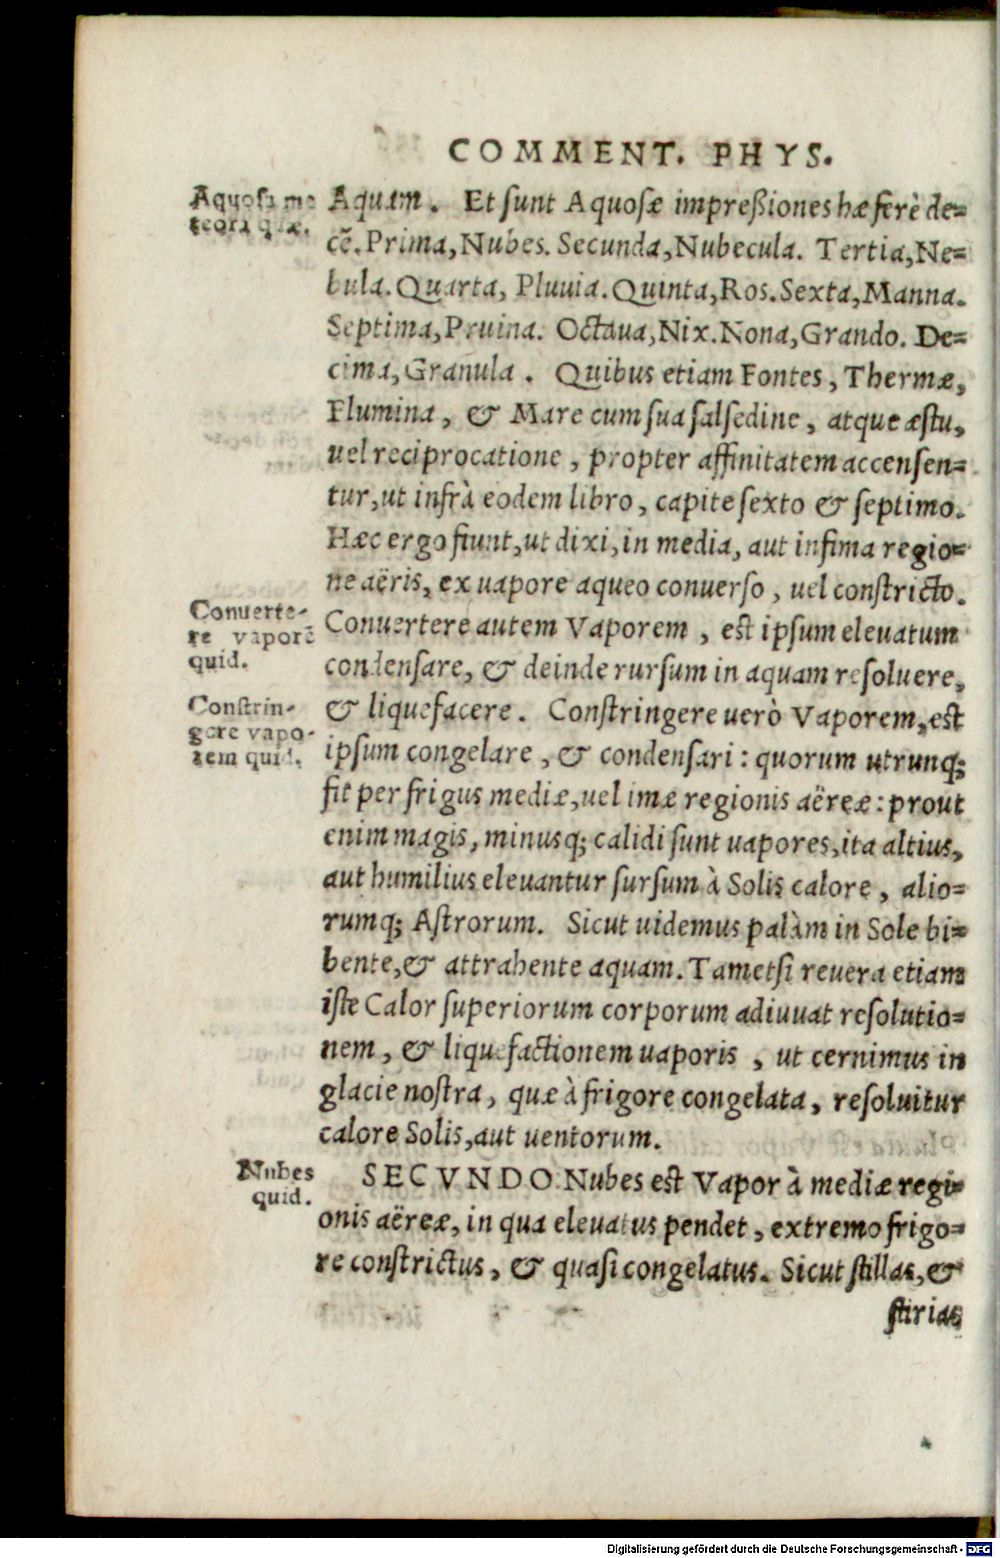 COMMENT. PHYS.
Aquosi me-
teora quæ.
Aquam. Et sunt Aquosæ impreßiones hæ ferè de=
cē. Prima, Nubes. Secunda, Nubecula. Tertia, Ne=
bula. Quarta, Pluuia. Quinta, Ros. Sexta, Manna.
Septima, Pruina. Octaua, Nix. Nona, Grando. De=
cima, Granula. Quibus etiam Fontes, Thermæ,
Flumina, & Mare cum sua salsedine, atque æstu,
uel reciprocatione, propter affinitatem accensen=
tur, ut infrà eodem libro, capite sexto & septimo.
Hæc ergo fiunt, ut dixi, in media, aut infima regio=
ne aëris, ex uapore aqueo conuerso, uel constricto.
Conuerte-
re vaporē
quid.
Conuertere autem Vaporem, est ipsum eleuatum
condensare, & deinde rursum in aquam resoluere,
Constrin-
gere vapo-
rem quid.
& liquefacere. Constringere uerò Vaporem, est
ipsum congelare, & condensari: quorum utrunq;
fit per frigus mediæ, uel imæ regionis aëreæ: prout
enim magis, minusq; calidi sunt uapores, ita altius,
aut humilius eleuantur sursum à Solis calore, alio=
rumq; Astrorum. Sicut uidemus palàm in Sole bi=
bente, & attrahente aquam. Tametsi reuera etiam
iste Calor superiorum corporum adiuuat resolutio=
nem, & liquefactionem uaporis, ut cernimus in
glacie nostra, quæ à frigore congelata, resoluitur
calore Solis, aut uentorum.
Nubes
quid.
SECVNDO Nubes est Vapor à mediæ regi=
onis aëreæ, in qua eleuatus pendet, extremo frigo=
re constrictus, & quasi congelatus. Sicut stillas, &
stirias
Digitalisierung gefördert durch die Deutsche Forschungsgemeinschaft - DFG